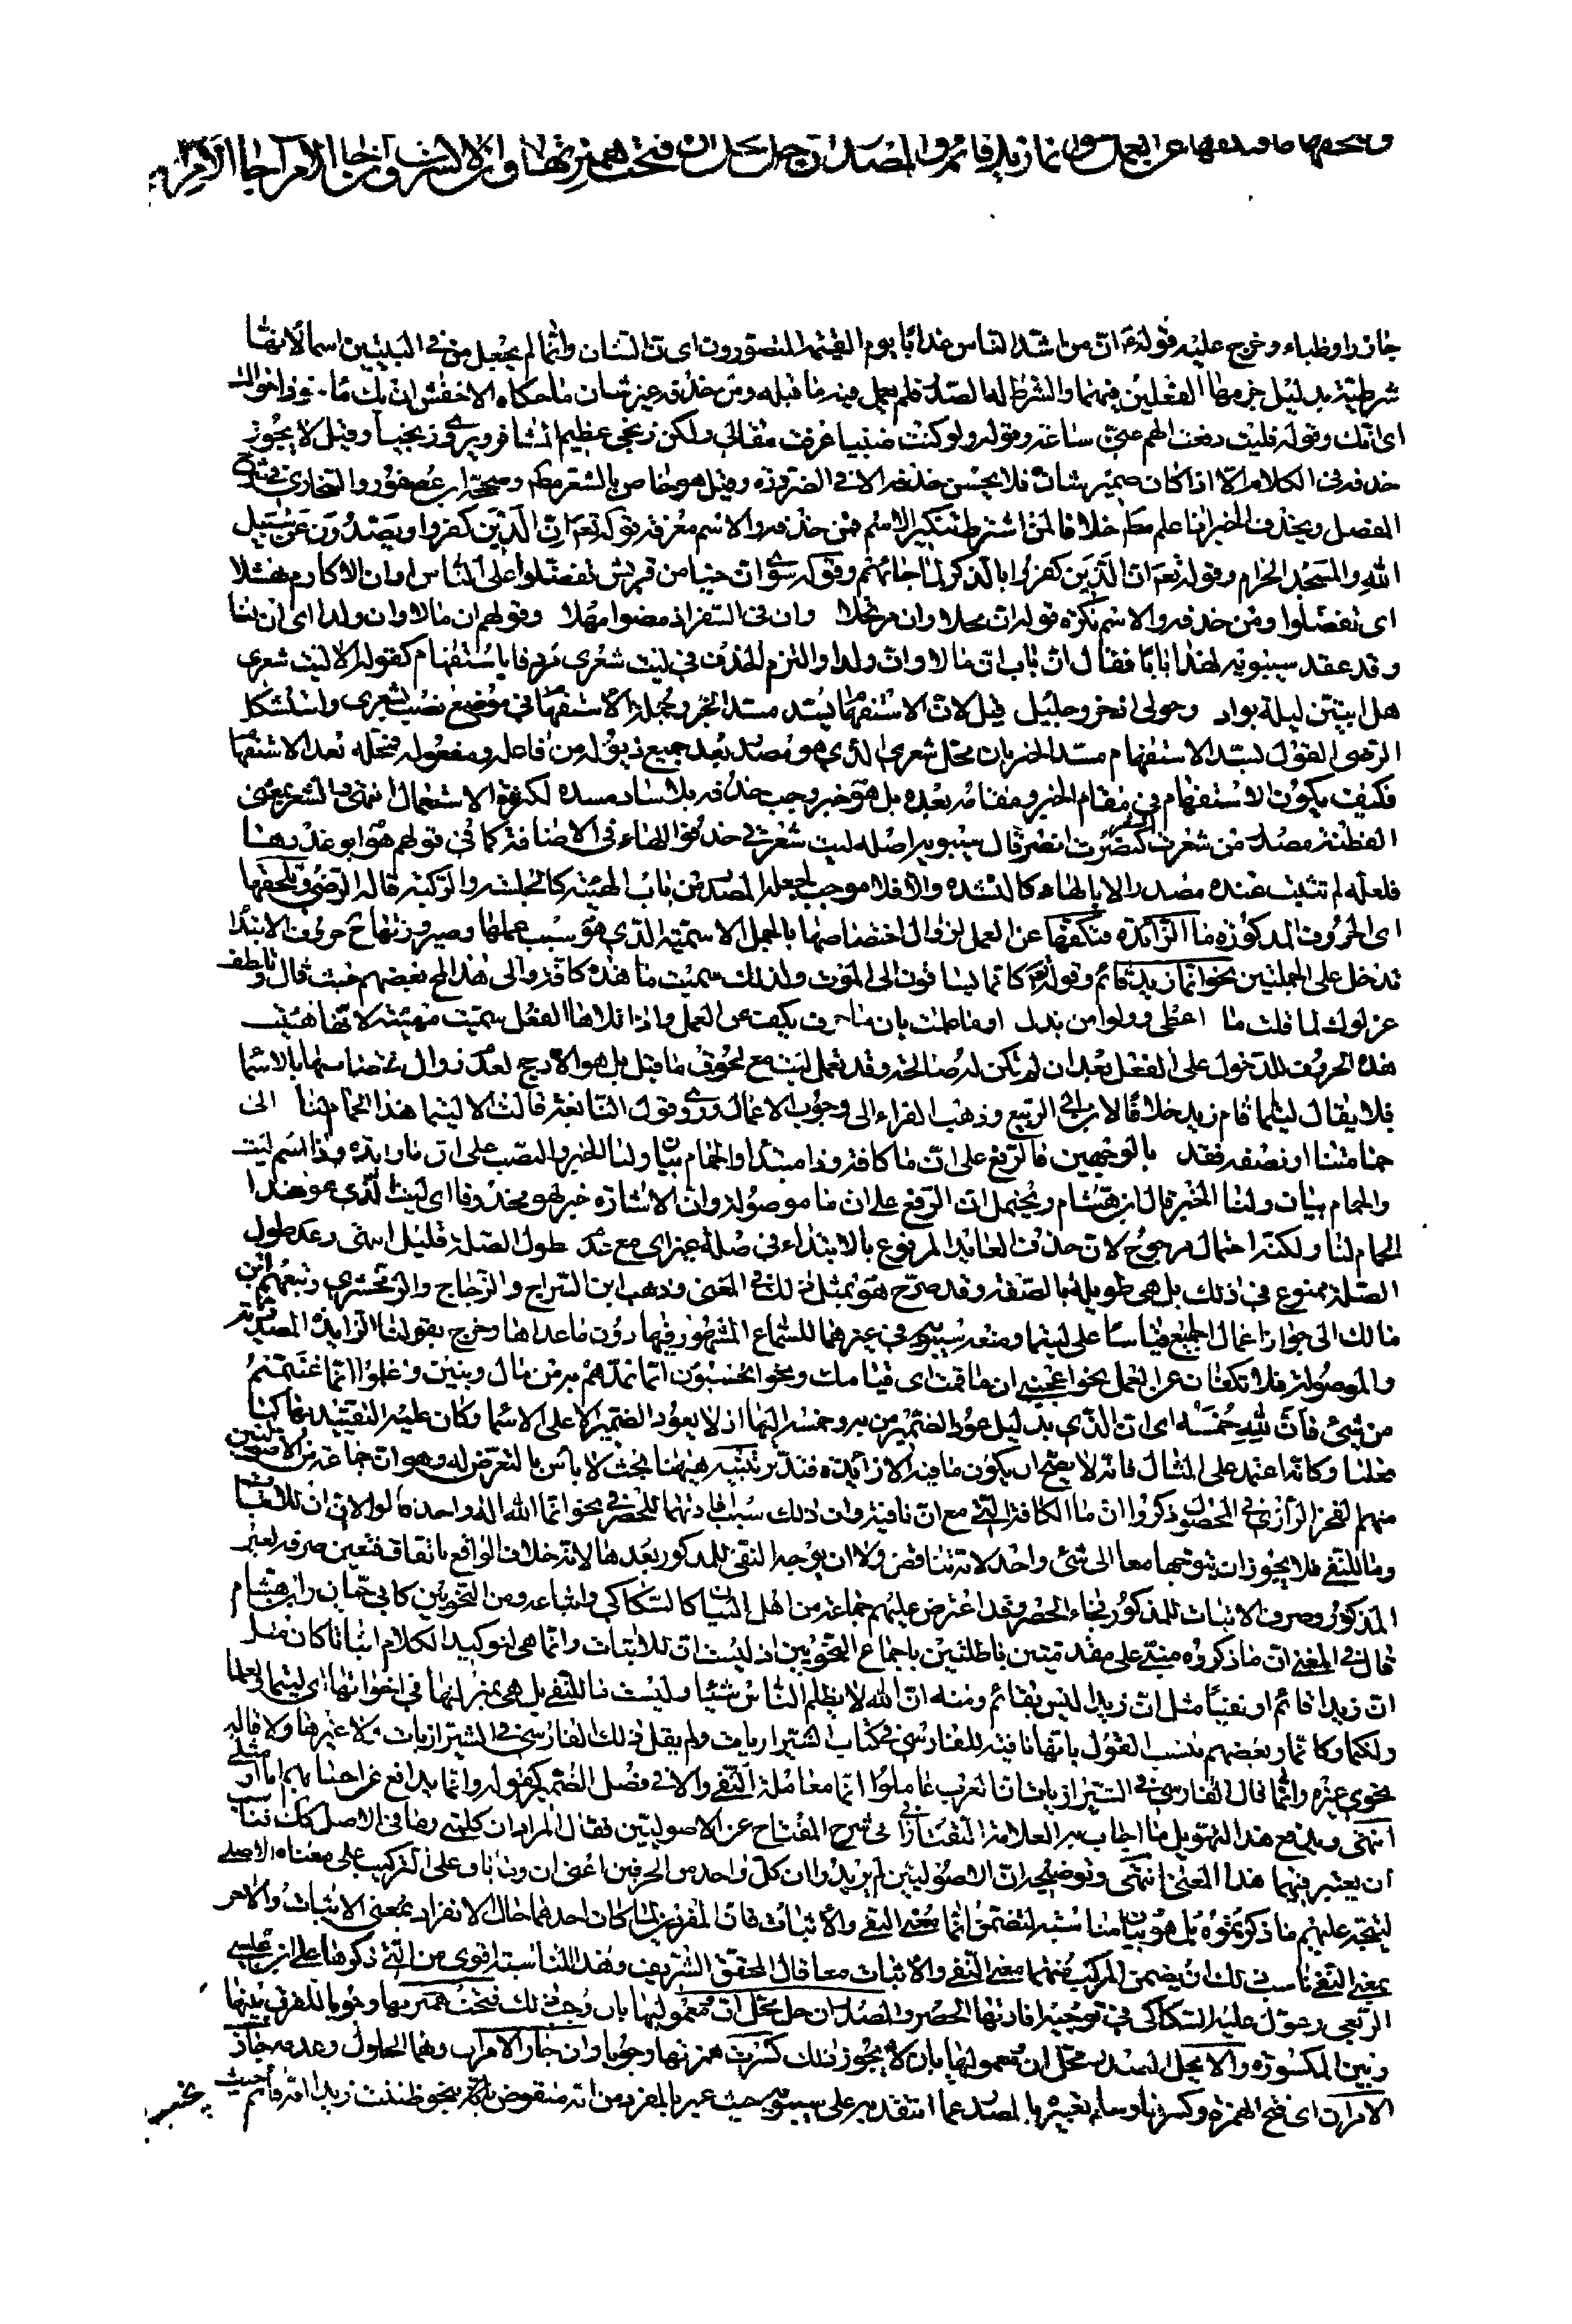 وتلحقها ما فتكفها عن العمل نحو انما زيد قائم والمصدر ان حل محل ان فتحت همزتها والا كسرت وان جاز الامران جاز الامران
جاذرا وظباء وخرج عليه قوله ان من اشد الناس عذابا يوم القيمة المصورون اى ان الشان وانما لم يجعل من فى البيتين اسما لانها
شرطية بدليل جزمها الفعلين فيهما والشرط له الصدر فلم يعمل فيه ما قبله ومن حذفه غير شان ما حكاه الاخفش ان بك ماخوذ اخواك
اى انك وقوله فليت دفعت الهم عنى ساعة وقوله ولو كنت ضبيا عرفت مقالتى ولكن زنجى عظيم المشافر ويروى زنجيا وقيل لا يجوز
حذفه فى الكلام الا اذا كان ضمير شان فلا يحسن حذفه الا فى الضرورة وقيل هو خاص بالشعر مطم وصححه ابن عصفور والسخاوى فى شرح
المفصل ويحذف الخبر اذا علم مطم خلافا لمن اشترط تنكير الاسم فمن حذفه والاسم معرفة قوله تعم ان الذين كفروا ويصدون عن سبيل
الله والمسجد الحرام وقوله تعم ان الذين كفروا بالذكر لما جائهم وقوله سوى ان حيا من قريش تفضلوا على الناس او ان الاكارم نهشلا
اى تفضلوا ومن حذفه والاسم نكرة قوله ان محلا وان مرتحلا وان فى السفر اذ مضوا مهلا وقولهم ان مالا وان ولدا اى ان لنا
وقد عقد سيبويه لهذا بابا فقال ان باب ان مالا وان ولدا والتزم الحذف فى ليت شعرى مردفا باستفهام كقوله الا ليت شعرى
هل ابيتن ليلة بواد وحولى اذخر وجليل قيل لان الاستفهام يسد مسد الخبر وجملة الاستفهام فى موضع نصب بشعرى واستشكل
الرضى القول بسد الاستفهام مسد الخبر بان محل شعرى الذى هو مصدر بعد جميع ذيوله من فاعله ومفعوله فمحله بعد الاستفهام
فكيف يكون الاستفهام فى مقام الخبر ومقامه بعده بل هو خبر وجب حذفه بلا ساد مسده لكثرة الاستعمال انتهى والشعر بمعنى
الفطنة مصدر من شعرت كنصرت انصر قال سيبويه اصله ليت شعرتى حذفوا الهاء فى الاضافة كما فى قولهم هو ابو عذرها
فلعله لم تثبت عنده مصدرا الا بالهاء كالنشدة والا فلا موجب لجعل المصدر من باب الهيئة كالجلسة والركبة قاله الرضى وتلحقها
اى الحروف المذكورة ما الزائدة فتكفها عن العمل لزوال اختصاصها بالجمل الاسمية الذى هو سبب عملها وصيرورتها ح حروف الابتداء
تدخل على الجملتين نحو انما زيد قائم وقوله تعم كانما يساقون الى الموت ولذلك سميت ما هذه كافة والى هذا المح بعضهم حيث قال
هذه الحروف للدخول على الفعل بعد ان لم تكن له صالحة وقد تعمل ليت مع لحوق ما قيل بل هو الارجح لعدم زوال اختصاصها بالاسما
فلا يقال ليتما قام زيد خلافا لابن ابى الربيع وذهب الفراء الى وجوب الاعمال وروى قول النابغة قالت الا ليتما هذا الحمام لنا الى
حمامتنا او نصفه فقد بالوجهين فالرفع على ان ما كافة وذا مبتدا والحمام بيان ولنا الخبر والنصب على ان ما زايدة وذا اسم ليت
والحمام بيان ولنا الخبر قال ابن هشام ويحتمل ان الرفع على ان ما موصولة وان الاشارة خبر لهو محذوفا اى ليت الذى هو هذا
الحمام لنا ولكنه احتمال مرجوح لان حذف العايد المرفوع بالابتداء فى صلة غير اى مع عدم طول الصلة قليل انتهى وعدم طول
الصلة ممنوع فى ذلك بل هى طويلة بالصفة وقد صرح هو بمثل ذلك فى المغنى وذهب ابن السراج والزجاج والزمخشرى وتبعهم ابن
مالك الى جواز اعمال الجميع قياسا على ليتما ومنعه سيبويه فى غيرهما للسماع المشهور فيها دون ما عداها وخرج بقولنا الزايدة المصدرية
والموصولة فلا تكفان عن العمل نحو اعجبنى ان ما قمت اى قيامك ونحو ايحسبون انما نمدهم به من مال وبنين واعلموا انما غنمتم
من شئ فان لله خمسه اى ان الذى بدليل عود الضمير من به وخمسه اليها اذ لا يعود الضمير الا على الاسما وكان عليه التقييد بها كما
فعلنا وكانه اعتمد على المثال فانه لا يصح ان يكون ما فيه الا زايدة فتدبر تنبيه هيهنا بحث لا باس بالتعرض له وهو ان جماعة من الاصوليين
منهم الفخر الرازى فى المحصول ذكروا ان ما الكافة التى مع ان نافية وان ذلك سبب افادتهما للحصر فى نحو انما الله اله واحد قالوا لان ان للاثبات
وما للنفى فلا يجوز ان يتوجها معا الى شئ واحد لانه تناقض ولا ان يوجه النفى للمذكور بعدها لانه خلاف الواقع باتفاق فتعين صرفه لغير
المذكور وصرف الاثبات للمذكور فجاء الحصر وقد اعترض عليهم جماعة من اهل البيان كالسكاكى واتباعه ومن النحويين كابى حيان وابن هشام
قال فى المغنى ان ما ذكروه مبنى على مقدمتين باطلتين باجماع النحويين اذ ليست ان للاثبات وانما هى لتوكيد الكلام اثباتا كان مثل
ان زيدا قائم او نفيا مثل ان زيدا ليس بقائم ومنه ان الله لا يظلم الناس شيئا وليست ما للنفى بل هى بمنزلتها فى اخواتها اى ليتما ولعلما
ولكنما وكانما وبعضهم ينسب القول بانها نافية للفارسى فى كتاب الشيرازيات ولم يقل ذلك الفارسى فى الشيرازيات ولا غيرها ولا قاله
نحوى غيره وانما قال الفارسى فى الشيرازيات ان العرب عاملوا انما معاملة النفى والا فى فصل الضمير كقوله وانما يدافع عن احسابهم انا او مثلى
انتهى ويدفع هذا التهويل ما اجاب به العلامة التفتازانى فى شرح المفتاح عن الاصوليين فقال المراد ان كلمتى وما فى الاصل كان فناسب
ان يعتبر فيهما هذا المعنى انتهى وتوضيحه ان الاصوليين لم يريدوا ان كل واحد من الحرفين اعنى ان وما باق على التركيب على معناه الاصلى
ليتجه عليهم ما ذكرتموه بل هو بيان مناسبة لتضمن انما معنى النفى والاثبات فان المفردين لما كان احدهما حال الانفراد بمعنى الاثبات والاخر
بمعنى النفى ناسب ذلك ان يضمن المركب منهما معنى النفى والاثبات معا قال المحقق الشريف وهذه المناسبة اقوى من التى ذكرها على بن عيسى
الربعى وعول عليه السكاكى فى توجيه افادتها الحصر والمصدر ان حل محل ان ومعموليها بان وجب ذلك فتحت همزتها وجوبا للفرق بينها
وبين المكسورة والا يحل المصدر محل ان ومعموليها بان لا يجوز ذلك كسرت همزتها وجوبا وان جاز الامران وهما الحلول وعدمه جاز
الامران اى فتح الهمزة وكسرها وسلم تعبيره بالمصدر عما انتقد به على سيبويه حيث عبر بالمفرد من انه منقوض بكثير نحو ظننت زيدا انه قائم حيث